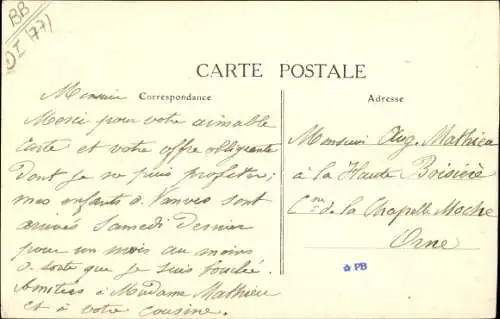 BB
DI (77)
CARTE POSTALE
Correspondance
Adresse
Monsieur
Merci pour votre aimable
Carte et votre offre obligeante
Dont je ne puis profiter;
mes enfants de Vanves sont
arrivés Samedi Dernier
pour un mois au moins
de sorte que je suis bouclée.
Amitiés à Madame Mathieu
et à votre cousine.
Monsieur Aug. Mathieu
à la Haute Boisière
Cne de la Chapelle Moche
Orne
☆ PB